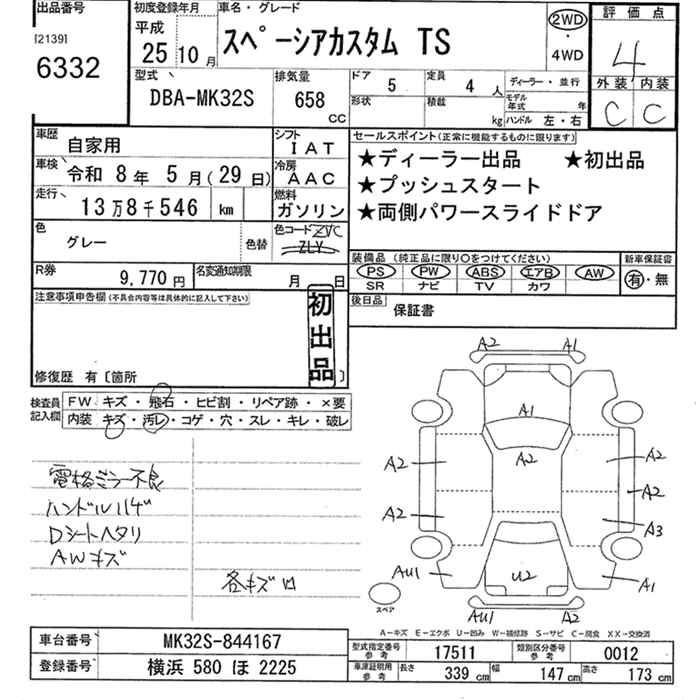 出品番号
[2139]
6332
初度登録年月
平成
25 10月
車名・グレード
スペーシアカスタム TS
2WD
・
4WD
評価点
4
外装 内装
C C
型式
DBA-MK32S
排気量
658
CC
ドア 5
定員 4 人
形状
積載 kg
ディーラー・並行
モデル年式 年
ハンドル 左・右
車歴 自家用
車検 令和 8年 5月(29日)
走行 13万8千546 km
シフト IAT
冷房 AAC
燃料 ガソリン
色 グレー
色替
色コード ZVC
ZLY
R券 9,770円
名変通知期限 月 日
セールスポイント(正常に機能するものに限ります)
★ディーラー出品 ★初出品
★プッシュスタート
★両側パワースライドドア
装備品 (純正品に限り○をつけてください)
PS PW ABS エアB AW
SR ナビ TV カワ
新車保証書
有・無
後日品 保証書
注意事項申告欄(不具合内容等は具体的に記入して下さい)
初出品
修復歴 有〔箇所 〕
検査員記入欄
FW キズ・飛石・ヒビ割・リペア跡・×要
内装 キズ・汚レ・コゲ・穴・スレ・キレ・破レ
電格ミラー不良
ハンドルハゲ
Dシートヘタリ
AWキズ
各キズ凹
A2 A1
A1
A2
A2 A2
A2
A2 A3
AU1 U2 A1
AU1 A2
スペア
A-キズ E-エクボ U-凹み W-補修跡 S-サビ C-腐食 XX-交換済
車台番号 MK32S-844167
登録番号 横浜 580 ほ 2225
型式指定番号 参考 17511
類別区分番号 参考 0012
車庫証明用 参考 長さ 339 cm 幅 147 cm 高さ 173 cm